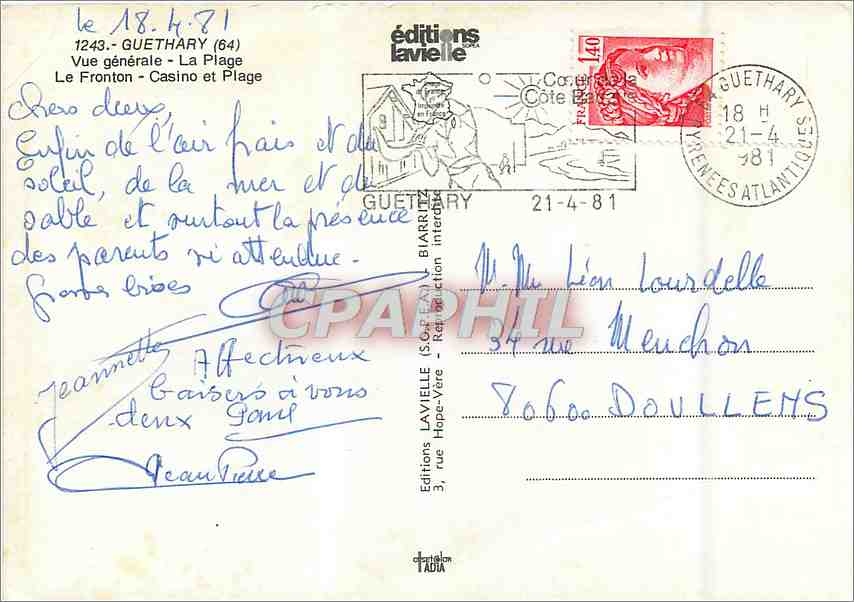 le 18.4.81
1243.- GUETHARY (64)
Vue générale - La Plage
Le Fronton - Casino et Plage
éditions
lavielle
SOPEA
Chers deux,
Enfin de l'air frais et du
soleil, de la mer et du
sable et surtout la présence
des parents si attendue.
Grosses bises
Jeannette
Affectueux
baisers à vous
deux Paul
Jean Pierre
FRANCE 1,40
Cœur de la
Côte Basque
imprimé
en France
GUETHARY 21-4-81
GUETHARY
18 H
21-4
1981
PYRENEES ATLANTIQUES
M. Me Léon Lourdelle
34 rue Menchon
80600 DOULLENS
Editions LAVIELLE (S.O.P.E.A.) - BIARRITZ
3, rue Hope-Vère - Reproduction interdite
CPAPHIL
offset color
IADIA